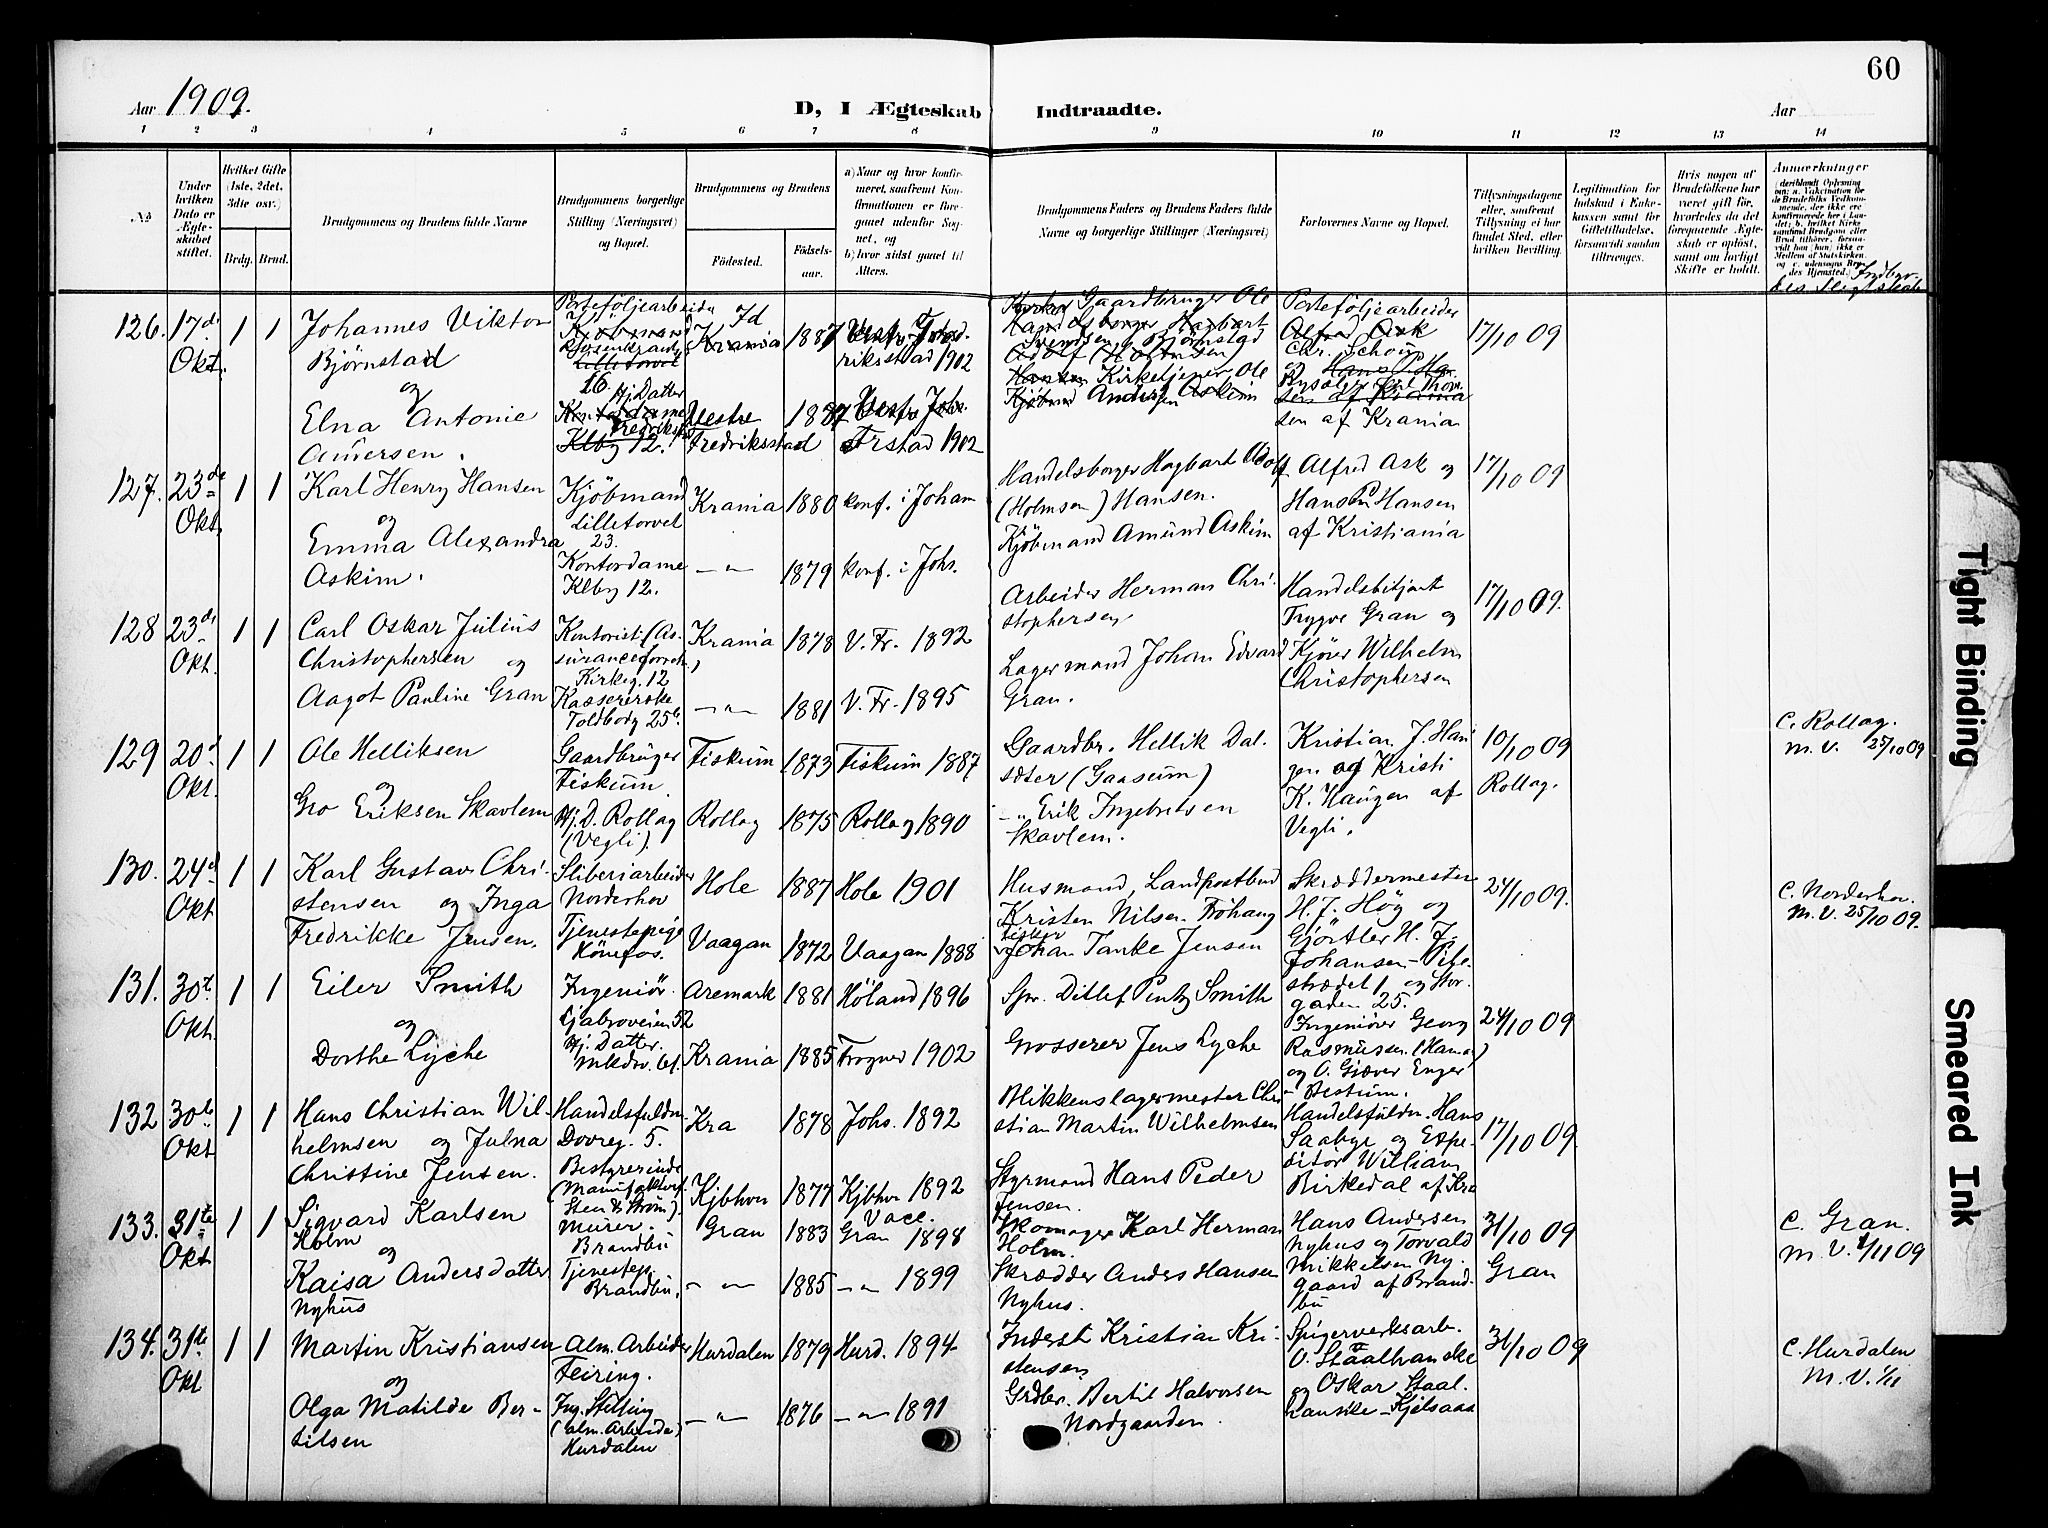 60
Aar 1909.
D, I Ægteskab Indtraadte.
Aar
1 2 3 4 5 6 7 8 9 10 11 12 13 14
No
Under hvilken Dato er Ægteskabet stiftet.
Hvilket Gifte (1ste, 2det, 3die osv.)
Brdg. Brud.
Brudgommens og Brudens fulde Navne
Brudgommens borgerlige Stilling (Næringsvei) og Bopæl.
Brudgommens og Brudens
Fødested. Fødselsaar.
a) Naar og hvor konfirmeret, saafremt Konfirmationen er foregaaet udenfor Sognet, og
b) hvor sidst gaaet til Alters.
Brudgommens Faders og Brudens Faders fulde Navne og borgerlige Stillinger (Næringsvei)
Forlovernes Navne og Bopæl.
Tillysningsdagene eller, saafremt Tillysning ei har fundet Sted, efter hvilken Bevilling.
Legitimation for Indskud i Enkekassen samt for Giftetilladelse, forsaavidt saadan tiltrænges.
Hvis nogen af Brudefolkene har været gift før, hvorledes da det foregaaende Ægteskab er opløst, samt om lovligt Skifte er holdt.
Anmerkninger
126. 17d Okt. 1 1
Johannes Viktor
Bjørnstad
og
Elna Antonie
Andersen.
Porteføljearbeider
Rosenkrantzg
16.
Hj. Datter
Fredrikst
Id 1887
Vestre Fredriksstad 1887
riksstad 1902
Frstad 1902
Gaardbruger Ole
Svendsen Bjørnstad
Kirketjener Ole
Andersen
Porteføljearbeider
Chr. Schou
og
sen af Krania
17/10 09
127. 23de Okt. 1 1
Karl Henry Hansen
og
Emma Alexandra
Askim.
Kjøbmand
Lilletorvet
23.
Kontordame
Klbg 12.
Krania 1880 konf. i Joham
—〃— 1879 konf. i Johs.
Handelsborger Hagbart Adolf
(Holmsen) Hansen.
Kjøbmand Amund Askim
Alfred Ask og
Hans P. Hansen
af Kristiania
17/10 09
128 23de Okt. 1 1
Carl Oskar Julius
Christophersen og
Aagot Pauline Gran
Kontorist (As-
suranceforretn.)
Kirkeg. 12
Kassererske
Toldbodg 25b.
Krania 1878 V. Fr. 1892
—〃— 1881 V. Fr. 1895
Arbeider Herman Chri-
stophersen
Lagermand Johan Edvard
Gran.
Handelsbetjent
Trygve Gran og
Kjører Wilhelm
Christophersen
17/10 09.
129 20d Okt. 1 1
Ole Helliksen
og
Gro Eriksen Skavlem
Gaardbruger
Fiskum.
Hj. D. Rollag
(Vegli).
Fiskum 1873 Fiskum 1887
Rollag 1875 Rollag 1890
Gaardbr. Hellik Dal-
sæter (Gaasum)
—〃— Erik Ingebretsen
Skavlem.
Kristian J. Hau
gen og Kristi
K. Haugen af
Vegli.
10/10 09
Rollag.
C. Rollag.
m. V. 25/10 09
130. 24d Okt 1 1
Karl Gustav Chri-
stensen og Inga
Fredrikke Jensen.
Sliberiarbeider
Norderhov
Tjenestepige
Hønefos.
Hole 1887 Hole 1901
Vaagan 1872 Vaagan 1888
Husmand, Landpostbud
Kristen Nilsen Frøhaug
Fisker
Johan Tanke Jensen
Skræddermester
H. J. Høg og
Gjørtler H. J.
Johansen - Pile-
strædet 1 og Stor-
gaden 25.
24/10 09.
C. Norderhov.
M. V. 25/10 09.
131. 30t Okt. 1 1
Eiler Smith
og
Dorthe Lyche
Ingeniør
Ljabroveien 52
Hj. Datter.
Mkdv. 61.
Aremark 1881 Høland 1896
Krania 1885 Frogner 1902
Spr. Ditlef Pentz Smith
Grosserer Jens Lyche
Ingeniører Georg
Rasmussen (Hamar)
og O. Giæver Enger
- Bestum.
24/10 09
132 30te Okt 1 1
Hans Christian Wil-
helmsen og Julna
Christine Jensen.
Handelsfuldm
Dovreg. 5.
Bestyrerinde
(Manufakturf.
Steen & Strøm).
Kra 1878 Johs. 1892
Kjbhvn 1877 Kjbhvn 1892
Blikkenslagermester Chri
stian Martin Wilhelmsen
Styrmand Hans Peder
Jensen.
Handelsfuldm. Hans
Saabye og Expe-
ditør William
Birkedal af Kra
17/10 09.
133. 31te Okt 1 1
Sigvard Karlsen
Holm
og
Kaisa Andersdatter
Nyhus
Murer.
Brandbu
Tjenestep.
Brandbu.
Gran 1883 Gran 1898
—〃— 1885 —〃— 1899
Vacc.
Skomager Karl Herman
Holm.
Skrædder Anders Hansen
Nyhus.
Hans Andersen
Nyhus og Torvald
Mikkelsen Ny-
gaard af Brand-
bu
31/10 09
Gran
C. Gran.
m. V. 1/11 09
134. 31te Okt 1 1
Martin Kristiansen
og
Olga Matilde Ber-
tilsen
Alm. Arbeider
Feiring.
Ing. Stilling
(alm. Arbeide)
Hurdalen
Hurdalen 1879 Hurd. 1894
—〃— 1876 —〃— 1891
Inderst Kristian Kri-
stensen
Grdbr. Bertil Halvorsen
Nordgaarden.
Spigerverksarb.
O. Staalhanske
og Oskar Staal-
hanske - Kjelsaas
31/10 09
C. Hurdalen
M. V. 1/11
Tight Binding
Smeared Ink